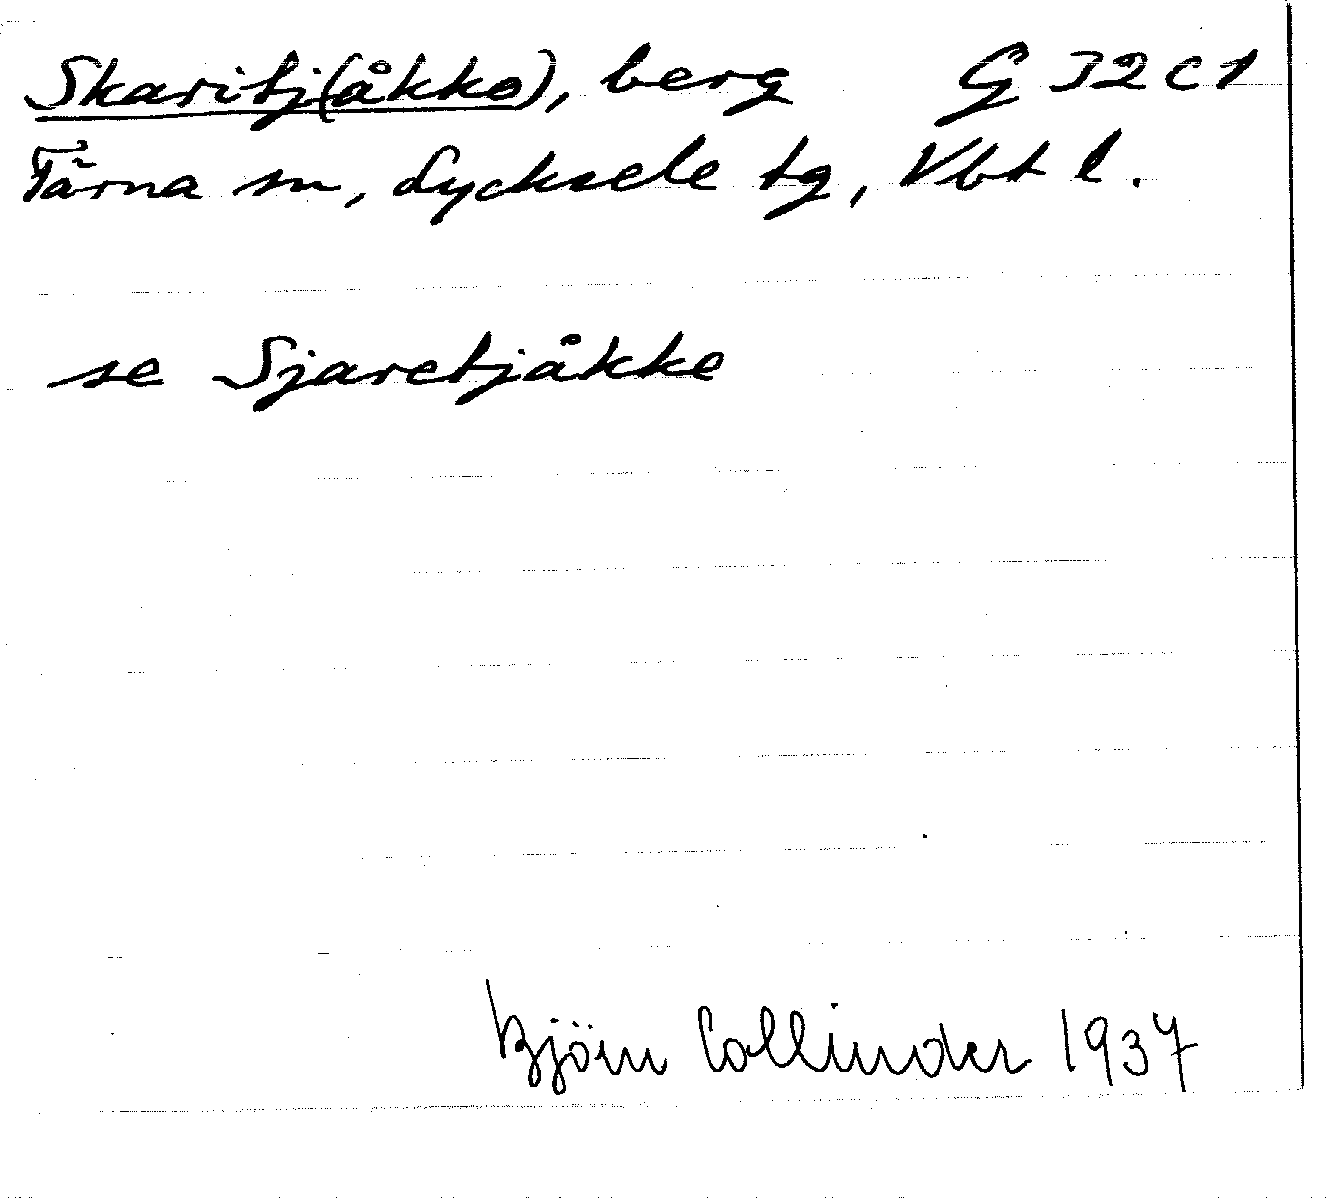 Skaritj(åkko), berg G 32 C 1
Tärna sn, Lycksele tg, Vbt l.
se Sjaretjåkke
Björn Collinder 1937